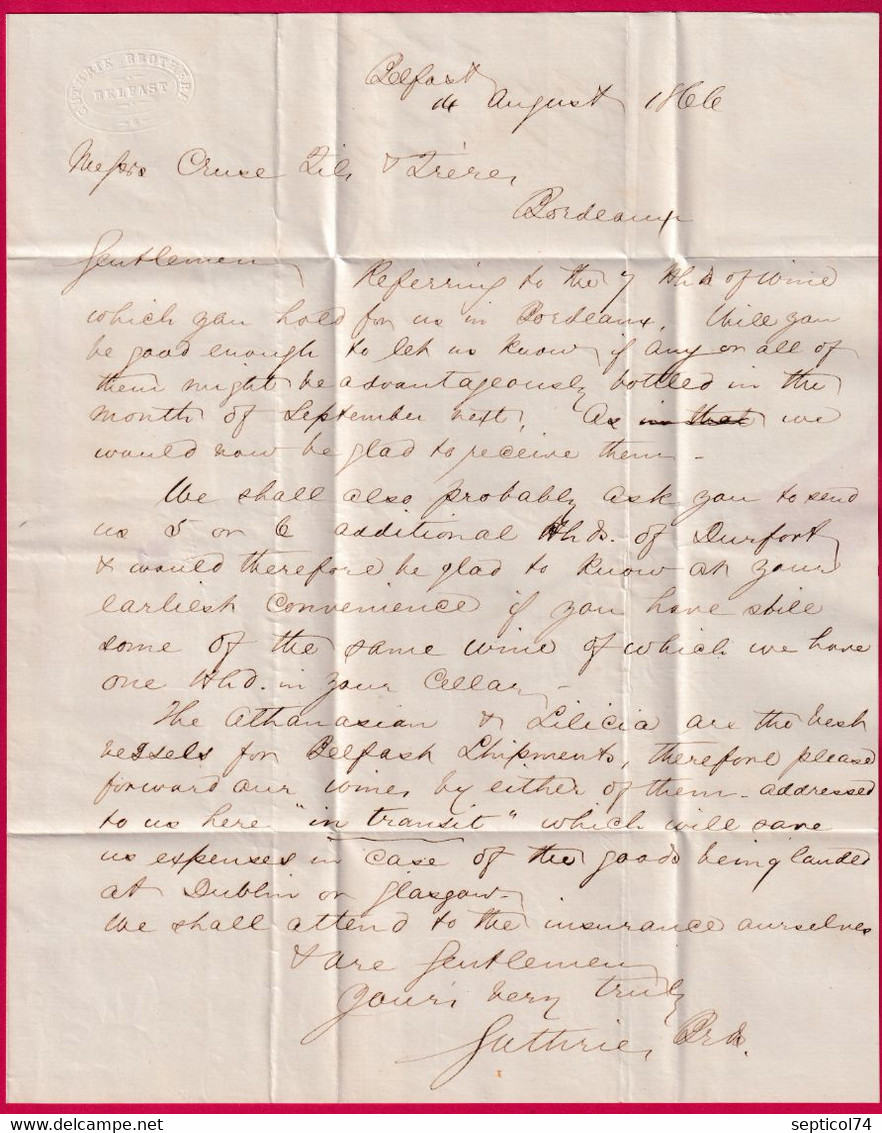 GUTHRIE BROTHERS
BELFAST
Belfast
4 August 1866
Messrs Cruse Fils & Frères
Bordeaux
Gentlemen
Referring to the 7 Hhds of wine
which you hold for us in Bordeaux, Will you
be good enough to let us know if any or all of
them might be advantageously bottled in the
month of September next, As in that we
would now be glad to receive them -
We shall also probably ask you to send
us 5 or 6 additional Hhds. of Durfort
& would therefore be glad to know at your
earliest convenience if you have still
some of the same wine of which we have
one Hhd. in your Cellar -
The Athanasian & Lilicia are the best
vessels for Belfast Shipments, therefore please
forward our wines by either of them - addressed
to us here "in transit" which will save
us expenses in case of the goods being landed
at Dublin or Glasgow -
We shall attend to the insurance ourselves
& are Gentlemen
Your's very truly
Guthrie Brs.
delcampe.net
septicol74